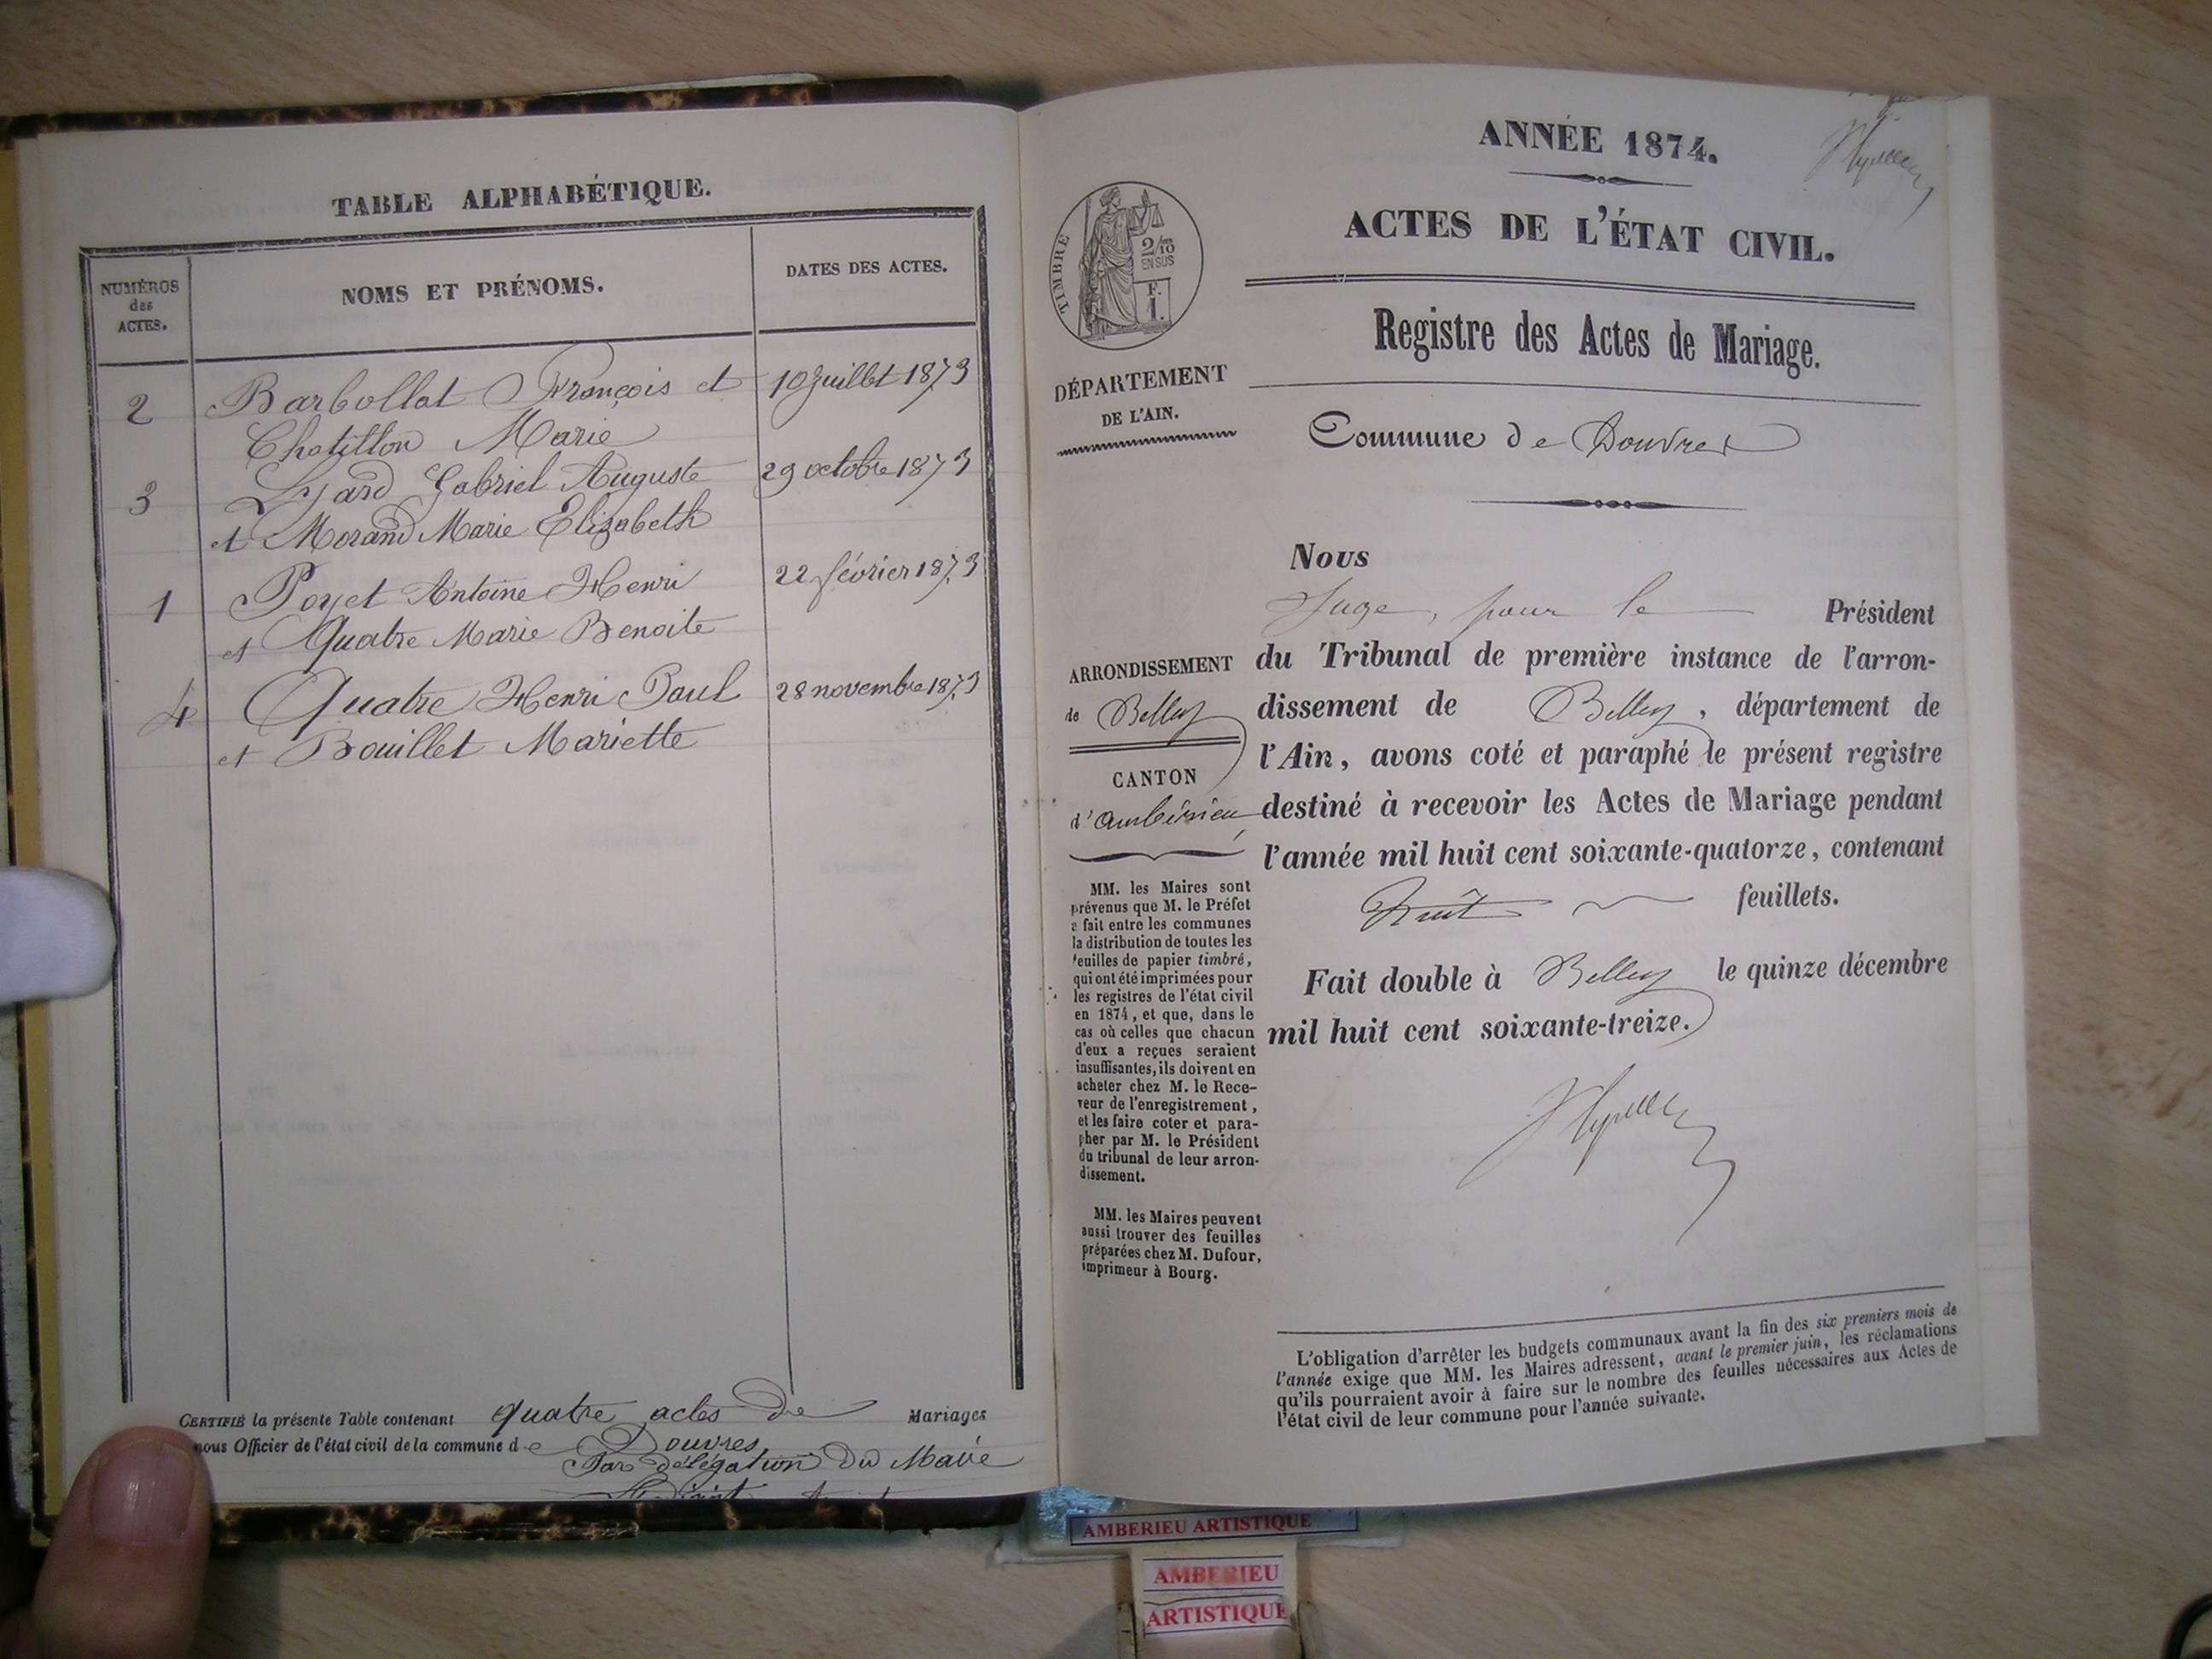 TABLE ALPHABÉTIQUE.
NUMÉROS
des
ACTES.
NOMS ET PRÉNOMS.
DATES DES ACTES.
2 Barbollat François et 10 Juillet 1873
Chatillon Marie
3 Lyard Gabriel Auguste 29 octobre 1873
et Morand Marie Elizabeth
1 Poyet Antoine Henri 22 février 1873
et Quatre Marie Benoite
4 Quatre Henri Paul 28 novembre 1873
et Bouillet Mariette
CERTIFIÉ la présente Table contenant quatre actes de Mariages
nous Officier de l'état civil de la commune de Douvres
Par délégation du Maire
ANNÉE 1874.
ACTES DE L'ÉTAT CIVIL.
TIMBRE
2/10
EN SUS
F.
1.
Registre des Actes de Mariage.
DÉPARTEMENT
DE L'AIN.
Commune de Douvres
Nous
Juge, pour le Président
du Tribunal de première instance de l'arron-
dissement de Belley, département de
l'Ain, avons coté et paraphé le présent registre
destiné à recevoir les Actes de Mariage pendant
l'année mil huit cent soixante-quatorze, contenant
huit feuillets.
Fait double à Belley le quinze décembre
mil huit cent soixante-treize.
ARRONDISSEMENT
de Belley
CANTON
d'ambérieu
MM. les Maires sont
prévenus que M. le Préfet
a fait entre les communes
la distribution de toutes les
feuilles de papier timbré,
qui ont été imprimées pour
les registres de l'état civil
en 1874, et que, dans le
cas où celles que chacun
d'eux a reçues seraient
insuffisantes, ils doivent en
acheter chez M. le Rece-
veur de l'enregistrement,
et les faire coter et para-
pher par M. le Président
du tribunal de leur arron-
dissement.
MM. les Maires peuvent
aussi trouver des feuilles
préparées chez M. Dufour,
imprimeur à Bourg.
L'obligation d'arrêter les budgets communaux avant la fin des six premiers mois de
l'année exige que MM. les Maires adressent, avant le premier juin, les réclamations
qu'ils pourraient avoir à faire sur le nombre des feuilles nécessaires aux Actes de
l'état civil de leur commune pour l'année suivante.
AMBERIEU ARTISTIQUE
AMBERIEU
ARTISTIQUE